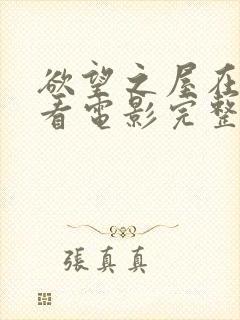 欲望之屋在
看電影完整
張真真